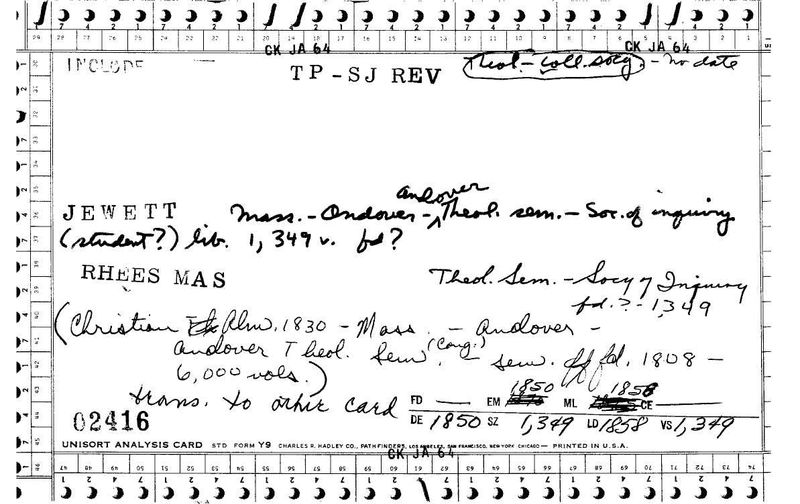 CK JA 64 CK JA 64
INCLUDE
TP-SJ REV Theol.-coll. socy. - no date
andover
JEWETT Mass. - Andover - Theol. sem. - Soc. of inquiry
(student?) lib. 1,349 v. fd?
RHEES MAS Theol. Sem. - Socy of Inquiry
fd.? - 1349
(Christian Alm. 1830 - Mass. - Andover -
Andover Theol. Sem. (Cong.) - sem. fd. 1808 -
6,000 vols.)
trans. to other card
FD — EM 1850 ML 1858 CE —
02416 DE 1850 SZ 1,349 LD 1858 VS 1,349
UNISORT ANALYSIS CARD STD FORM Y9 CHARLES R. HADLEY CO., PATHFINDERS, LOS ANGELES, SAN FRANCISCO, NEW YORK CHICAGO — PRINTED IN U.S.A.
CK JA 64